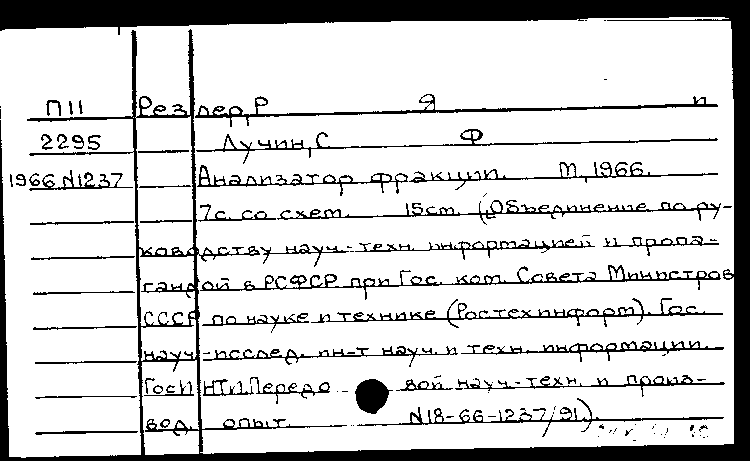 П11 Резлер, Р Я и
2295 Лучин, С Ф
1966 N1237 Анализатор фракции. М, 1966.
7с. со схем. 15см. (Объединение по ру-
ководству науч.-техн. информацией и пропа-
гандой в РСФСР при Гос. ком. Совета Министров
СССР по науке и технике (Ростехинформ). Гос.
науч-исслед. ин-т науч. и техн. информации.
ГосИНТИ. Передовой науч.-техн. и произ-
вод. опыт. N18-66-1237/91).